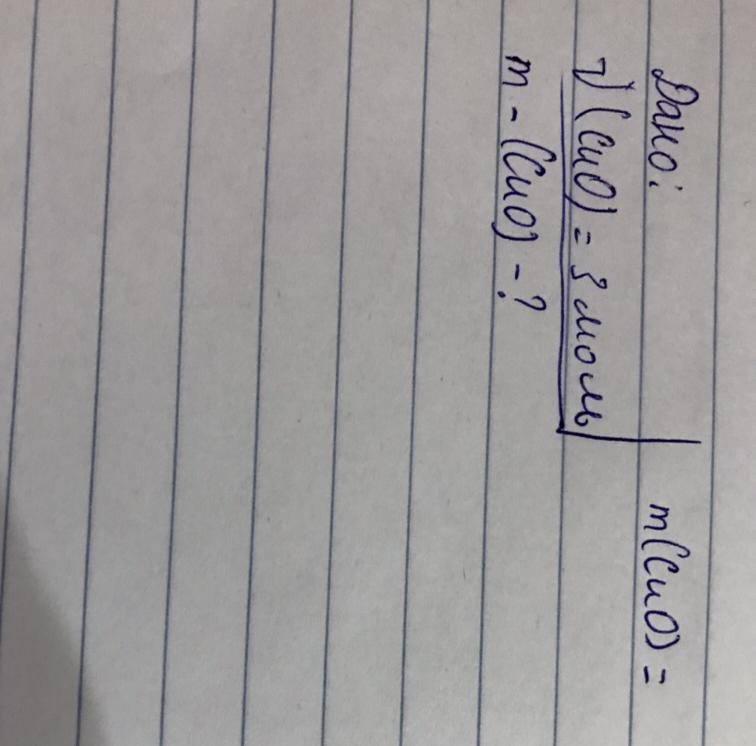 Дано:
ν(CuO) = 3 моль
m - (CuO) - ?
m(CuO) =